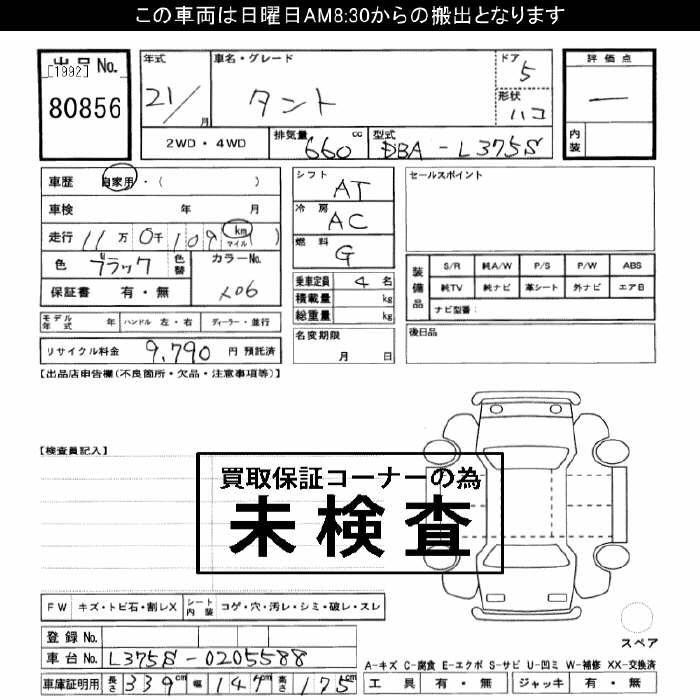 この車両は日曜日AM8:30からの搬出となります
出品No.
[1992]
80856
年式
21/
月
車名・グレード
タント
ドア
5
形状
ハコ
評価点
―
内装
2WD・4WD
排気量
660
cc
型式
DBA-L375S
車歴 自家用・( )
車検 年 月
走行 11万0千109( km マイル )
色 ブラック
色替
カラーNo.
X06
保証書 有・無
モデル年式 年
ハンドル 左・右
ディーラー・並行
リサイクル料金 9,790 円 預託済
シフト
AT
冷房
AC
燃料
G
乗車定員 4 名
積載量 kg
総重量 kg
名変期限
月 日
セールスポイント
装備品
S/R 純A/W P/S P/W ABS
純TV 純ナビ 革シート 外ナビ エアB
ナビ型番:
後日品
【出品店申告欄(不良箇所・欠品・注意事項等)】
【検査員記入】
買取保証コーナーの為
未検査
FW キズ・トビ石・割レX
シート内装 コゲ・穴・汚レ・シミ・破レ・スレ
登録No.
車台No. L375S-0205588
車庫証明用 長さ 339cm 幅 147cm 高さ 175cm
スペア
A-キズ C-腐食 E-エクボ S-サビ U-凹ミ W-補修 XX-交換済
工具 有・無 ジャッキ 有・無